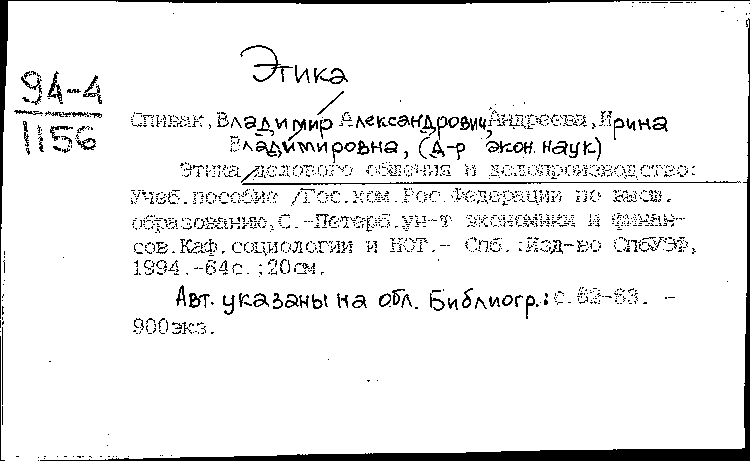 Этика
94-4
1156
Спивак, Владимир Александрович, Андреева, Ирина
Владимировна, (д-р экон. наук)
Этика делового общения и делопроизводство:
Учеб.пособие /Гос.ком.Рос.Федерации по высш.
образованию,С.-Петерб.ун-т экономики и финан-
сов.Каф.социологии и НОТ.- Спб.:Изд-во СпбУЭФ,
1994.-64с.;20см.
Авт. указаны на обл. Библиогр.: с.62-63. -
900экз.